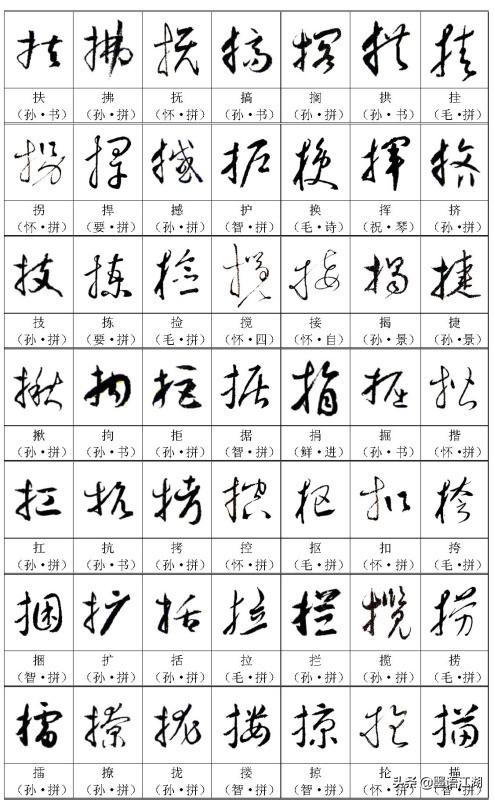 扶 拂 抚 搞 搁 拱 挂
(孙·书) (孙·拼) (怀·拼) (孙·书) (孙·拼) (孙·书) (毛·拼)
拐 捍 撼 护 换 挥 挤
(怀·拼) (要·拼) (孙·拼) (智·拼) (毛·诗) (祝·琴) (孙·拼)
技 拣 捡 搅 接 揭 捷
(孙·拼) (要·拼) (毛·拼) (怀·四) (怀·自) (孙·景) (孙·景)
揪 拘 拒 据 捐 掘 揩
(孙·拼) (孙·书) (孙·拼) (智·拼) (鲜·进) (孙·书) (怀·拼)
扛 抗 拷 控 抠 扣 挎
(孙·拼) (孙·书) (孙·拼) (怀·拼) (毛·拼) (怀·拼) (毛·拼)
捆 扩 括 拉 拦 揽 捞
(智·拼) (孙·拼) (孙·拼) (毛·拼) (孙·拼) (孙·拼) (毛·拼)
擂 撩 拢 搂 掠 抡 描
(孙·拼) (孙·拼) (孙·拼) (智·拼) (孙·拼) (怀·拼) (智·拼)
头条 @墨语江湖